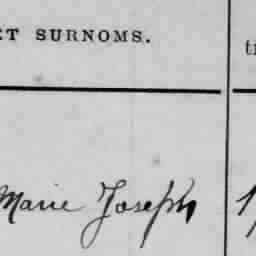 ET SURNOMS.
Marie Joseph